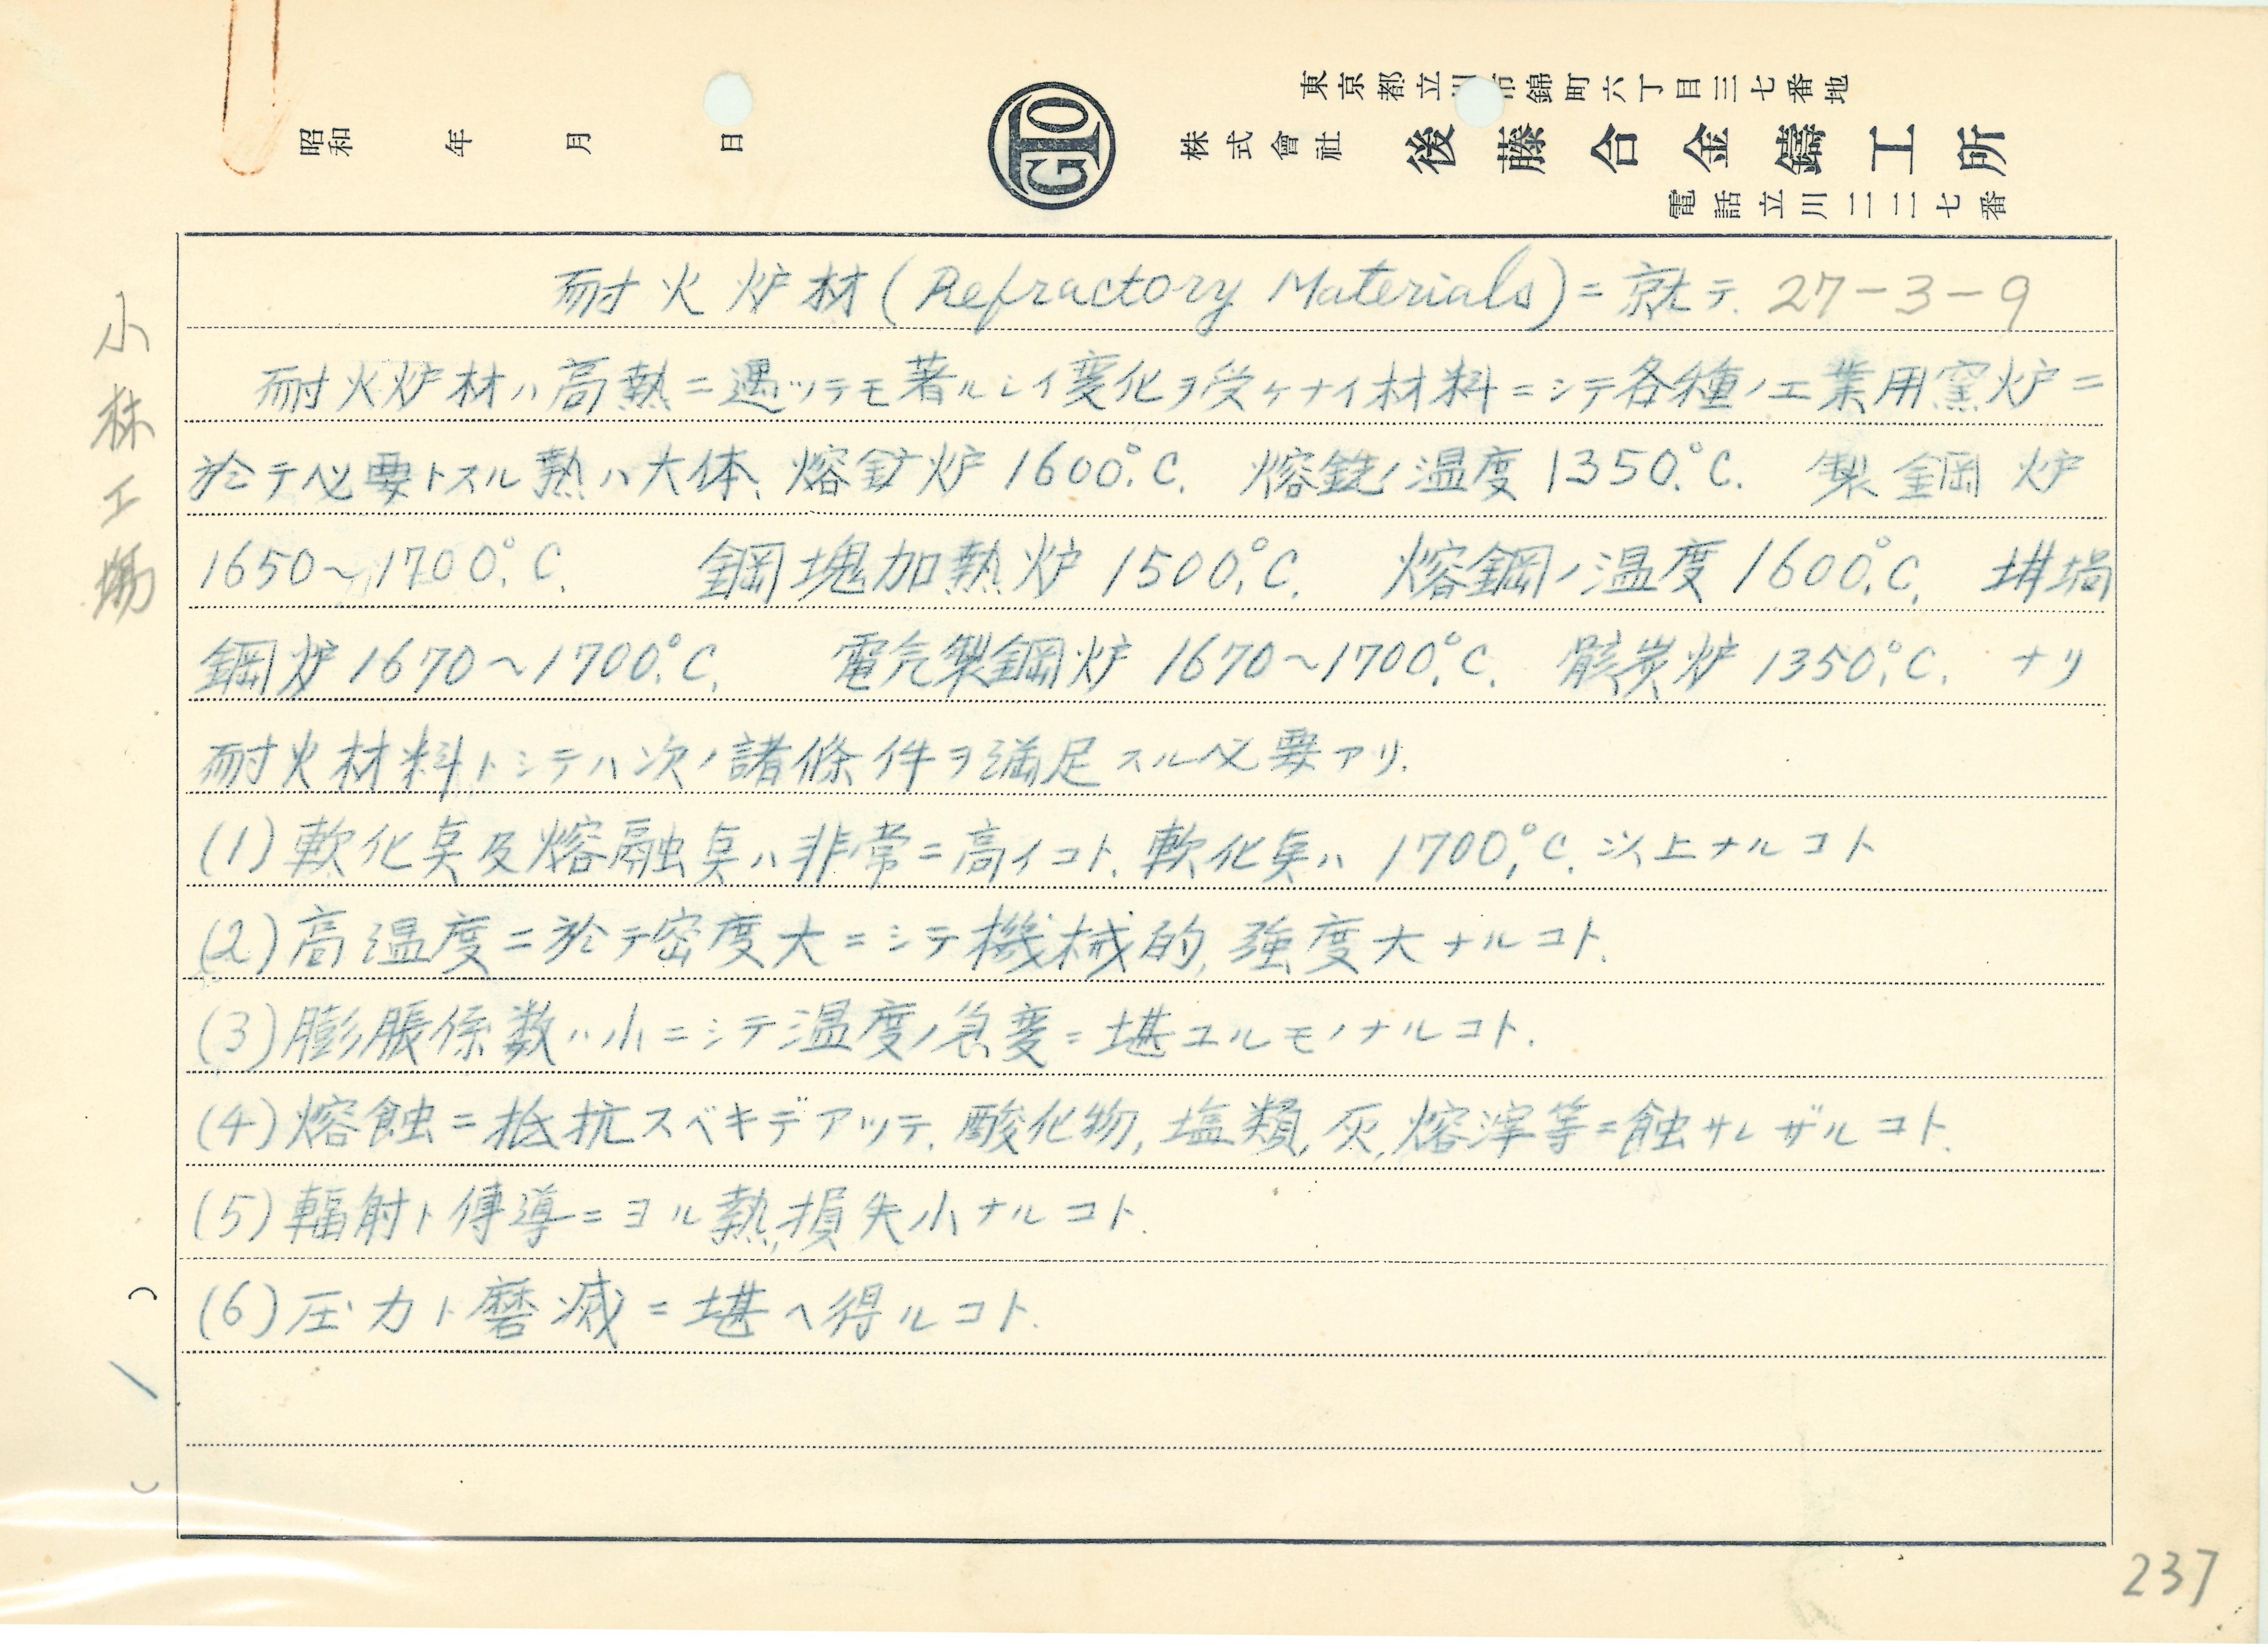 東京都立川市錦町六丁目三七番地
株式會社 後藤合金鑄工所
電話立川二二七番
昭和 年 月 日
GTO
小林工場
耐火炉材(Refractory Materials)ニ就テ. 27-3-9
耐火炉材ハ高熱ニ遇ッテモ著ルシイ変化ヲ受ケナイ材料ニシテ各種ノ工業用窯炉ニ
於テ必要トスル熱ハ大体、熔鉱炉1600°C. 熔銑ノ温度1350°C. 製鋼炉
1650~1700°C. 鋼塊加熱炉1500°C. 熔鋼ノ温度1600°C. 坩堝
鋼炉1670~1700°C. 電気製鋼炉1670~1700°C. 骸炭炉1350°C. ナリ
耐火材料トシテハ次ノ諸條件ヲ満足スル必要アリ.
(1)軟化点及熔融点ハ非常ニ高イコト.軟化点ハ1700°C.以上ナルコト
(2)高温度ニ於テ密度大ニシテ機械的,強度大ナルコト.
(3)膨脹係数ハ小ニシテ温度ノ急変ニ堪ユルモノナルコト.
(4)熔蝕ニ抵抗スベキデアッテ.酸化物,塩類,灰,熔滓等ニ蝕サレザルコト.
(5)輻射ト傳導ニヨル熱,損失小ナルコト.
(6)圧力ト磨滅ニ堪ヘ得ルコト.
( 1 )
237